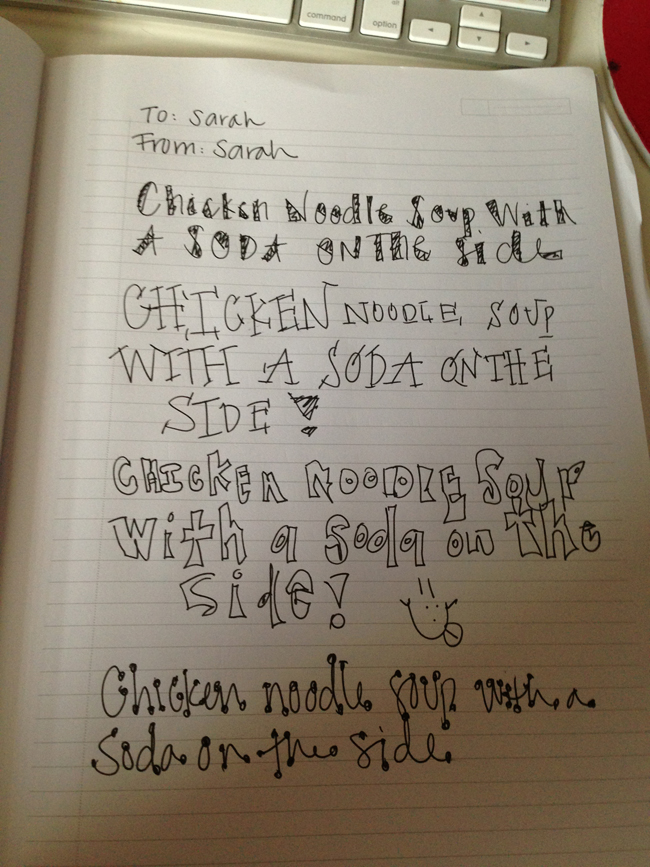 command
option
To: Sarah
From: Sarah
Chicken Noodle Soup With
A SODA ON THE Side
CHICKEN NOODLE SOUP
WITH A SODA ON THE
SIDE!
CHICKEN NOODLE SOUP
With a Soda on the
Side!
Chicken noodle soup with a
Soda on the side